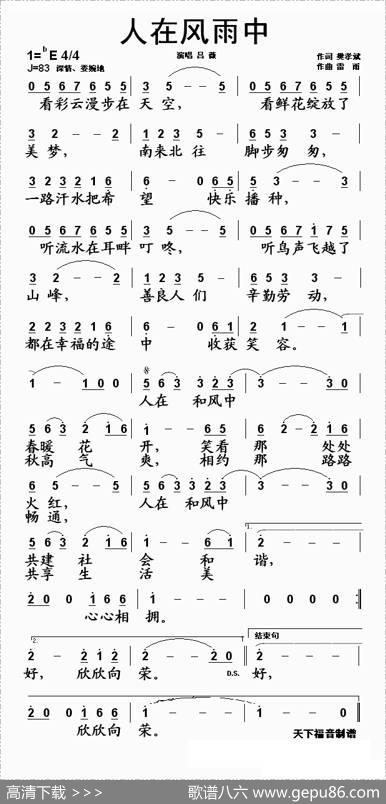 人在风雨中
1=ᵇE 4/4
演唱 吕 薇
作词 樊孝斌
J=83 深情、委婉地
作曲 雷 雨
0 5 6 7 6 5 5 | 3 - 5 - 5 | 0 5 6 7 6 5 5 |
看彩云漫步在 天 空， 看鲜花绽放了
3 2 - - 2 | 1 2 3 5 - 1 | 6 5 3 3 - |
美 梦， 南来北 往 脚步匆 匆，
3 2 3 2 1 6 | 6 - 0 6 5 | 5 - 3 - - |
一路汗水把希 望 快乐 播 种，
0 5 6 7 6 5 5 | 3 - 5 - 5 | 0 5 6 7 1 7 5 |
听流水在耳畔 叮 咚， 听鸟声飞越了
3 2 - - 2 | 1 2 3 5 - 1 | 6 5 3 3 - |
山 峰， 善良人 们 辛勤劳 动，
3 2 3 2 1 6 | 6 - 0 6 1 | 2 - - 1 | 1
都在幸福的途 中 收获 笑 容。
1 - 1 0 0 | 5 6 3 3 2 3 | 3 - - | 3 0 |
人在 和风中
5 6 3 2 1 6 | 1 - - 6 5 | 6 2 - 2 1 6 |
春暖 花 开， 笑看 那 处处
秋高 气 爽， 相约 那 路路
6 5 - - 5 | 5 6 3 3 2 3 | 3 - - | 3 0 |
火 红， 人在 和风中
畅 通，
5 6 3 2 1 6 | 1 - - 6 1 | 2 - - - |
共建 社 会 和 谐，
共享 生 活 美
1.
2 0 0 1 6 6 | 1 - - - | 0 0 0 0 :|
心心相 拥。
2.
结束句
2 - 2 1 2 | 2 - - 2 0 | 2 - - - |
好， 欣欣向 荣。 D.S. 好，
2 0 0 1 6 1 | 1 - - - | 1 0 0 0 ‖
欣欣向 荣。
天下福音制谱
高清下载 >>>
歌谱八六 www.gepu86.com